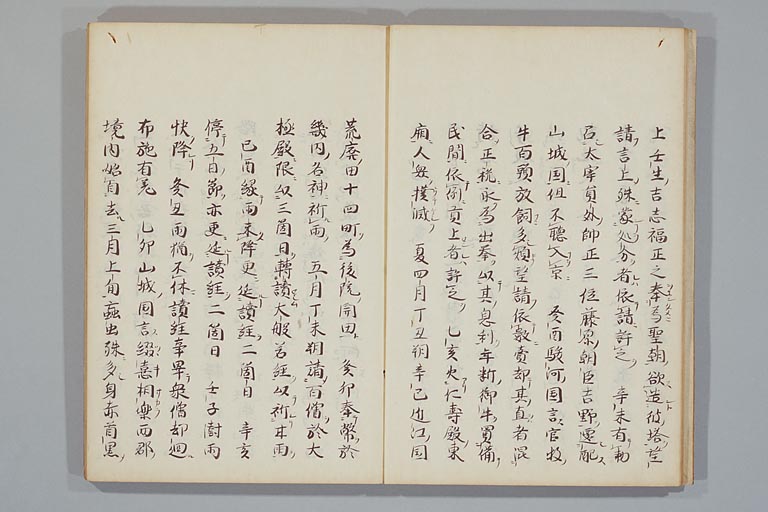 上壬生吉志福正之奉為聖朝欲造彼塔望
請言上殊蒙処分者依請許之　辛未有勅
召太宰員外帥正三位藤原朝臣吉野遷配
山城国但不聴入京　癸酉駿河国言官牧
牛百頭放飼多煩望請依数売却其直者混
合正税永為出挙以其息利年断御牛買備
民間依例貢上者許之　乙亥火仁寿殿東
廂人発撲滅　夏四月丁丑朔辛巳近江国
荒廃田十四町為後院開田　癸卯奉幣於
畿内名神祈雨　五月丁未朔請百僧於大
極殿限以三箇日転読大般若経以祈甘雨
己酉縁雨来降更延読経二箇日　辛亥
停五日節亦更延読経二箇日　壬子澍雨
快降　癸丑雨猶不休読経事畢衆僧却廻
布施有差　乙卯山城国言綴喜相楽両郡
境内始自去三月上旬虫虫殊多身赤首黒